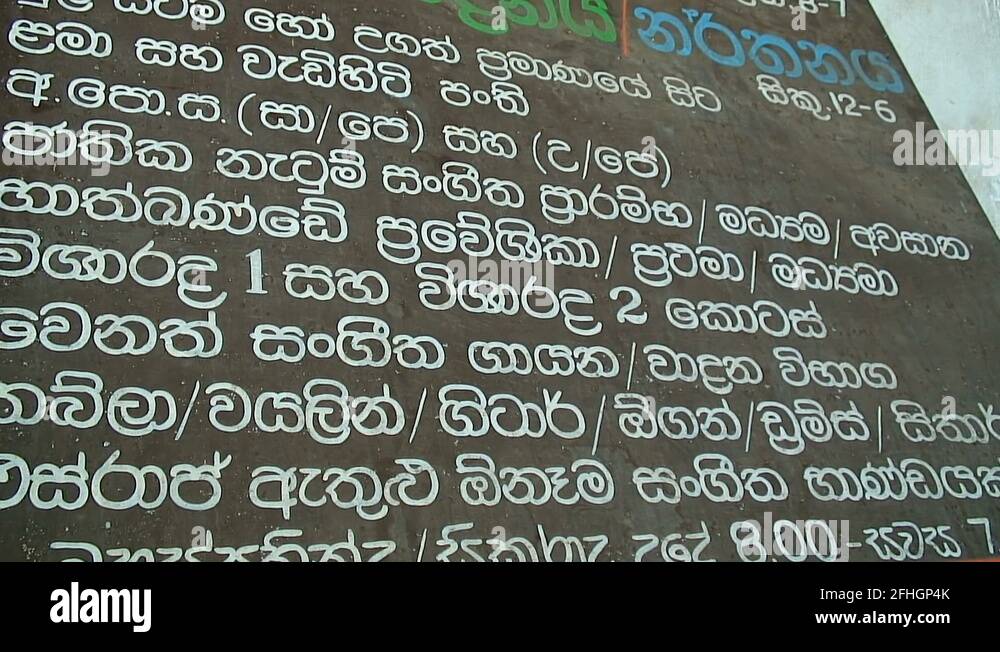 නර්තනය
සිට හෝ උගත් ප්‍රමාණයේ සිට සිකු.12-6
ළමා සහ වැඩිහිටි පංති
අ.පො.ස.(සා/පෙ) සහ (උ/පෙ)
ජාතික නැටුම් සංගීත ප්‍රාරම්භ/මධ්‍යම/අවසාන
භාත්ඛණ්ඩේ ප්‍රවේශිකා/ප්‍රථමා/මධ්‍යමා
විශාරද 1 සහ විශාරද 2 කොටස්
වෙනත් සංගීත ගායන/වාදන විභාග
තබ්ලා/වයලින්/ගිටාර්/ඕගන්/ඩ්‍රම්ස්/සිතාර්
එස්රාජ් ඇතුළු ඕනෑම සංගීත භාණ්ඩයක්
උදේ 8.00-සවස 7
alamy
Image ID: 2FHGP4K
www.alamy.com